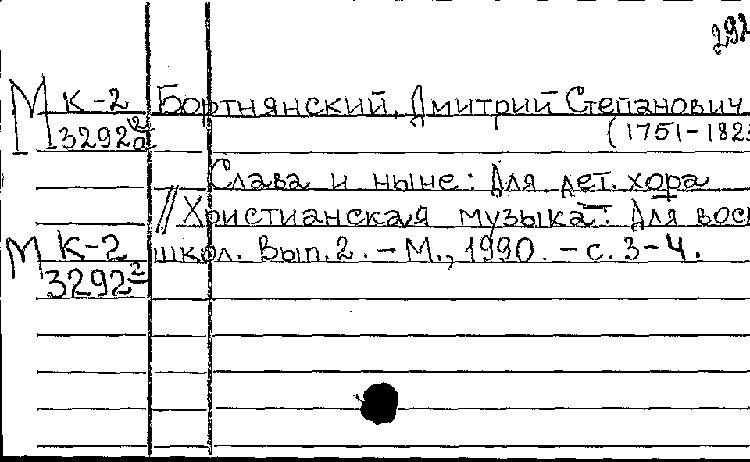 292
М К-2 Бортнянский, Дмитрий Степанович
3292
(1751-182
Слава и ныне: Для дет. хора
// Христианская музыка: Для вос
М К-2 школ. Вып. 2. - М., 1990. - с. 3-4.
3292²